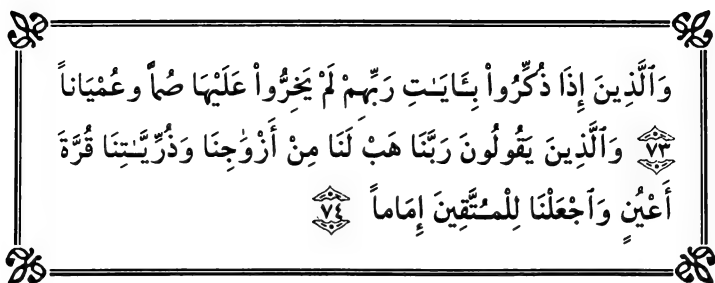 وَٱلَّذِينَ إِذَا ذُكِّرُواْ بِـَٔايَـٰتِ رَبِّهِمْ لَمْ يَخِرُّواْ عَلَيْهَا صُمّاً وعُمْيَاناً
٧٣ وَٱلَّذِينَ يَقُولُونَ رَبَّنَا هَبْ لَنَا مِنْ أَزْوَٰجِنَا وَذُرِّيَّـٰتِنَا قُرَّةَ
أَعْيُنٍ وَٱجْعَلْنَا لِلْمُتَّقِينَ إِمَاماً ٧٤